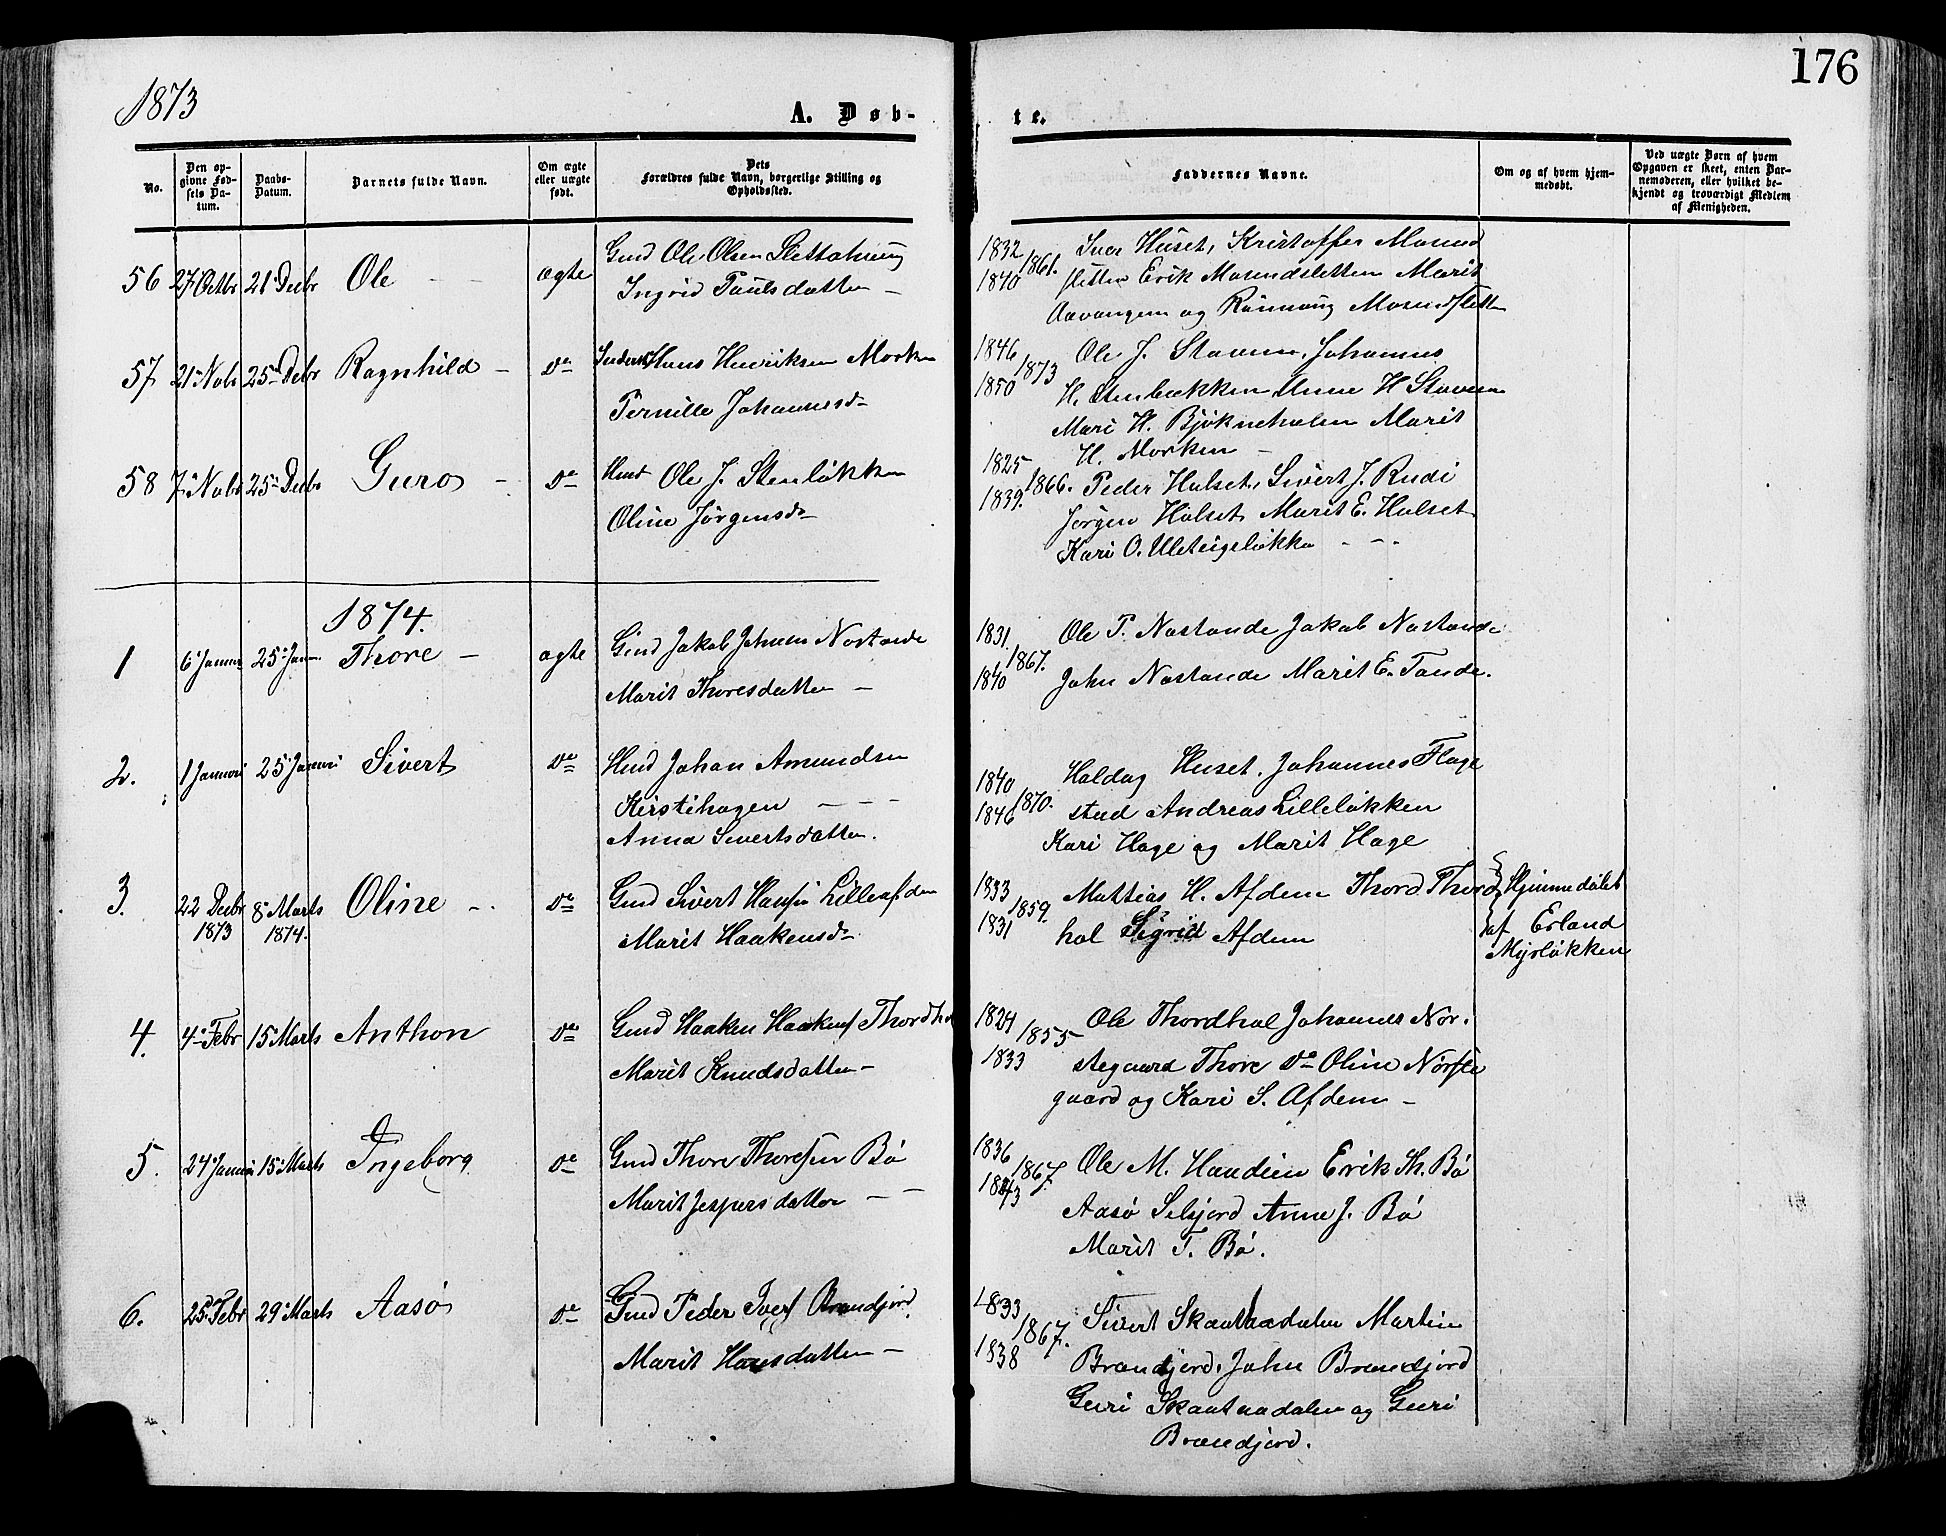 1873
A. Døb-
te.
176
No.
Den op-
givne Fød-
sels Da-
tum.
Daabs-
Datum.
Barnets fulde Navn.
Om ægte
eller uægte
født.
Dets
Forældres fulde Navn, borgerlige Stilling og
Opholdssted.
Faddernes Navne.
Om og af hvem hjem-
medøbt.
Ved uægte Børn af hvem
Opgaven er skeet, enten Bar-
nemoderen, eller hvilket be-
kjendt og troværdigt Medlem
af Menigheden.
56 27 Octbr 21 Decbr Ole ægte Gmd Ole Olsen
Ingrid Paulsdatter
1832
1840 1861.
Ivar Huset, Kristoffer Mosund
sletten Erik Mosundsletten Marit
Aavangem og Rønnaug Mosundslett
57 21 Nobr 25 Decbr Ragnhild do Hans Henriksen Morken
Pernille Johannesd
1846
1850 1873
Ole J. Stavem, Johannes
H. Stenbækken Anne H Stavem
Mari H. Bjøkneholen Marit
H. Morken
58 7 Nobr 25 Decbr Guro do Hmd Ole J. Stenløkken
Oline Jørgensd
1825
1839. 1866.
Peder Hulset, Sivert J. Rudi
Jørgen Hulset Marit E. Hulset
Kari O. Uleteigeløkka
1874.
1 6 Januar 25 Jan Thore ægte Gmd Jakob Johnsen Nostande
Marit Thoresdatter
1831.
1840 1867.
Ole P. Nostande Jakob Nostande
John Nostande Marit E. Tande.
2. 1 Januri 25 Januri Sivert do Hmd Johan Amundsen
Kirstihagen
Anna Sivertsdatter.
1840
1846 1870.
Haldag Huset, Johannes Flage
stad Andreas Lilleløkken
Kari Hage og Marit Hage
3. 22 Decbr
1873 8 Marts
1874. Oline do Gmd Sivert Hansen Lilleafdem
Marit Haakensd
1833
1831 1859.
Mattias H. Afdem Thord Thord
hol Sigrid Afdem
Hjemmedøbt
af Erland
Myrløkken
4. 4 Febr 15 Marts Anthon do Gmd Haaken Haakens Thordhol
Marit Knudsdatter
1824
1833 1855
Ole Thordhol Johannes Nor-
stegaard Thore do Oline Norste
gaard og Kari S. Afdem
5. 24 Januri 15 Marts Ingeborg do Gmd Thore Thoresen Bø
Marit Jespersdatter
1836
1843 1867.
Ole M. Haudem Erik Th. Bø
Aasø Selsjord Anne J. Bø
Marit T. Bø.
6. 25 Febr 29 Marts Aasø do Gmd Peder Ivers Brændjord
Marit Hansdatter
1833
1838 1867.
Sivert Skautnadalen Martin
Brændjord, John Brændjord
Guri Skautnadalen og Guri
Brændjord.